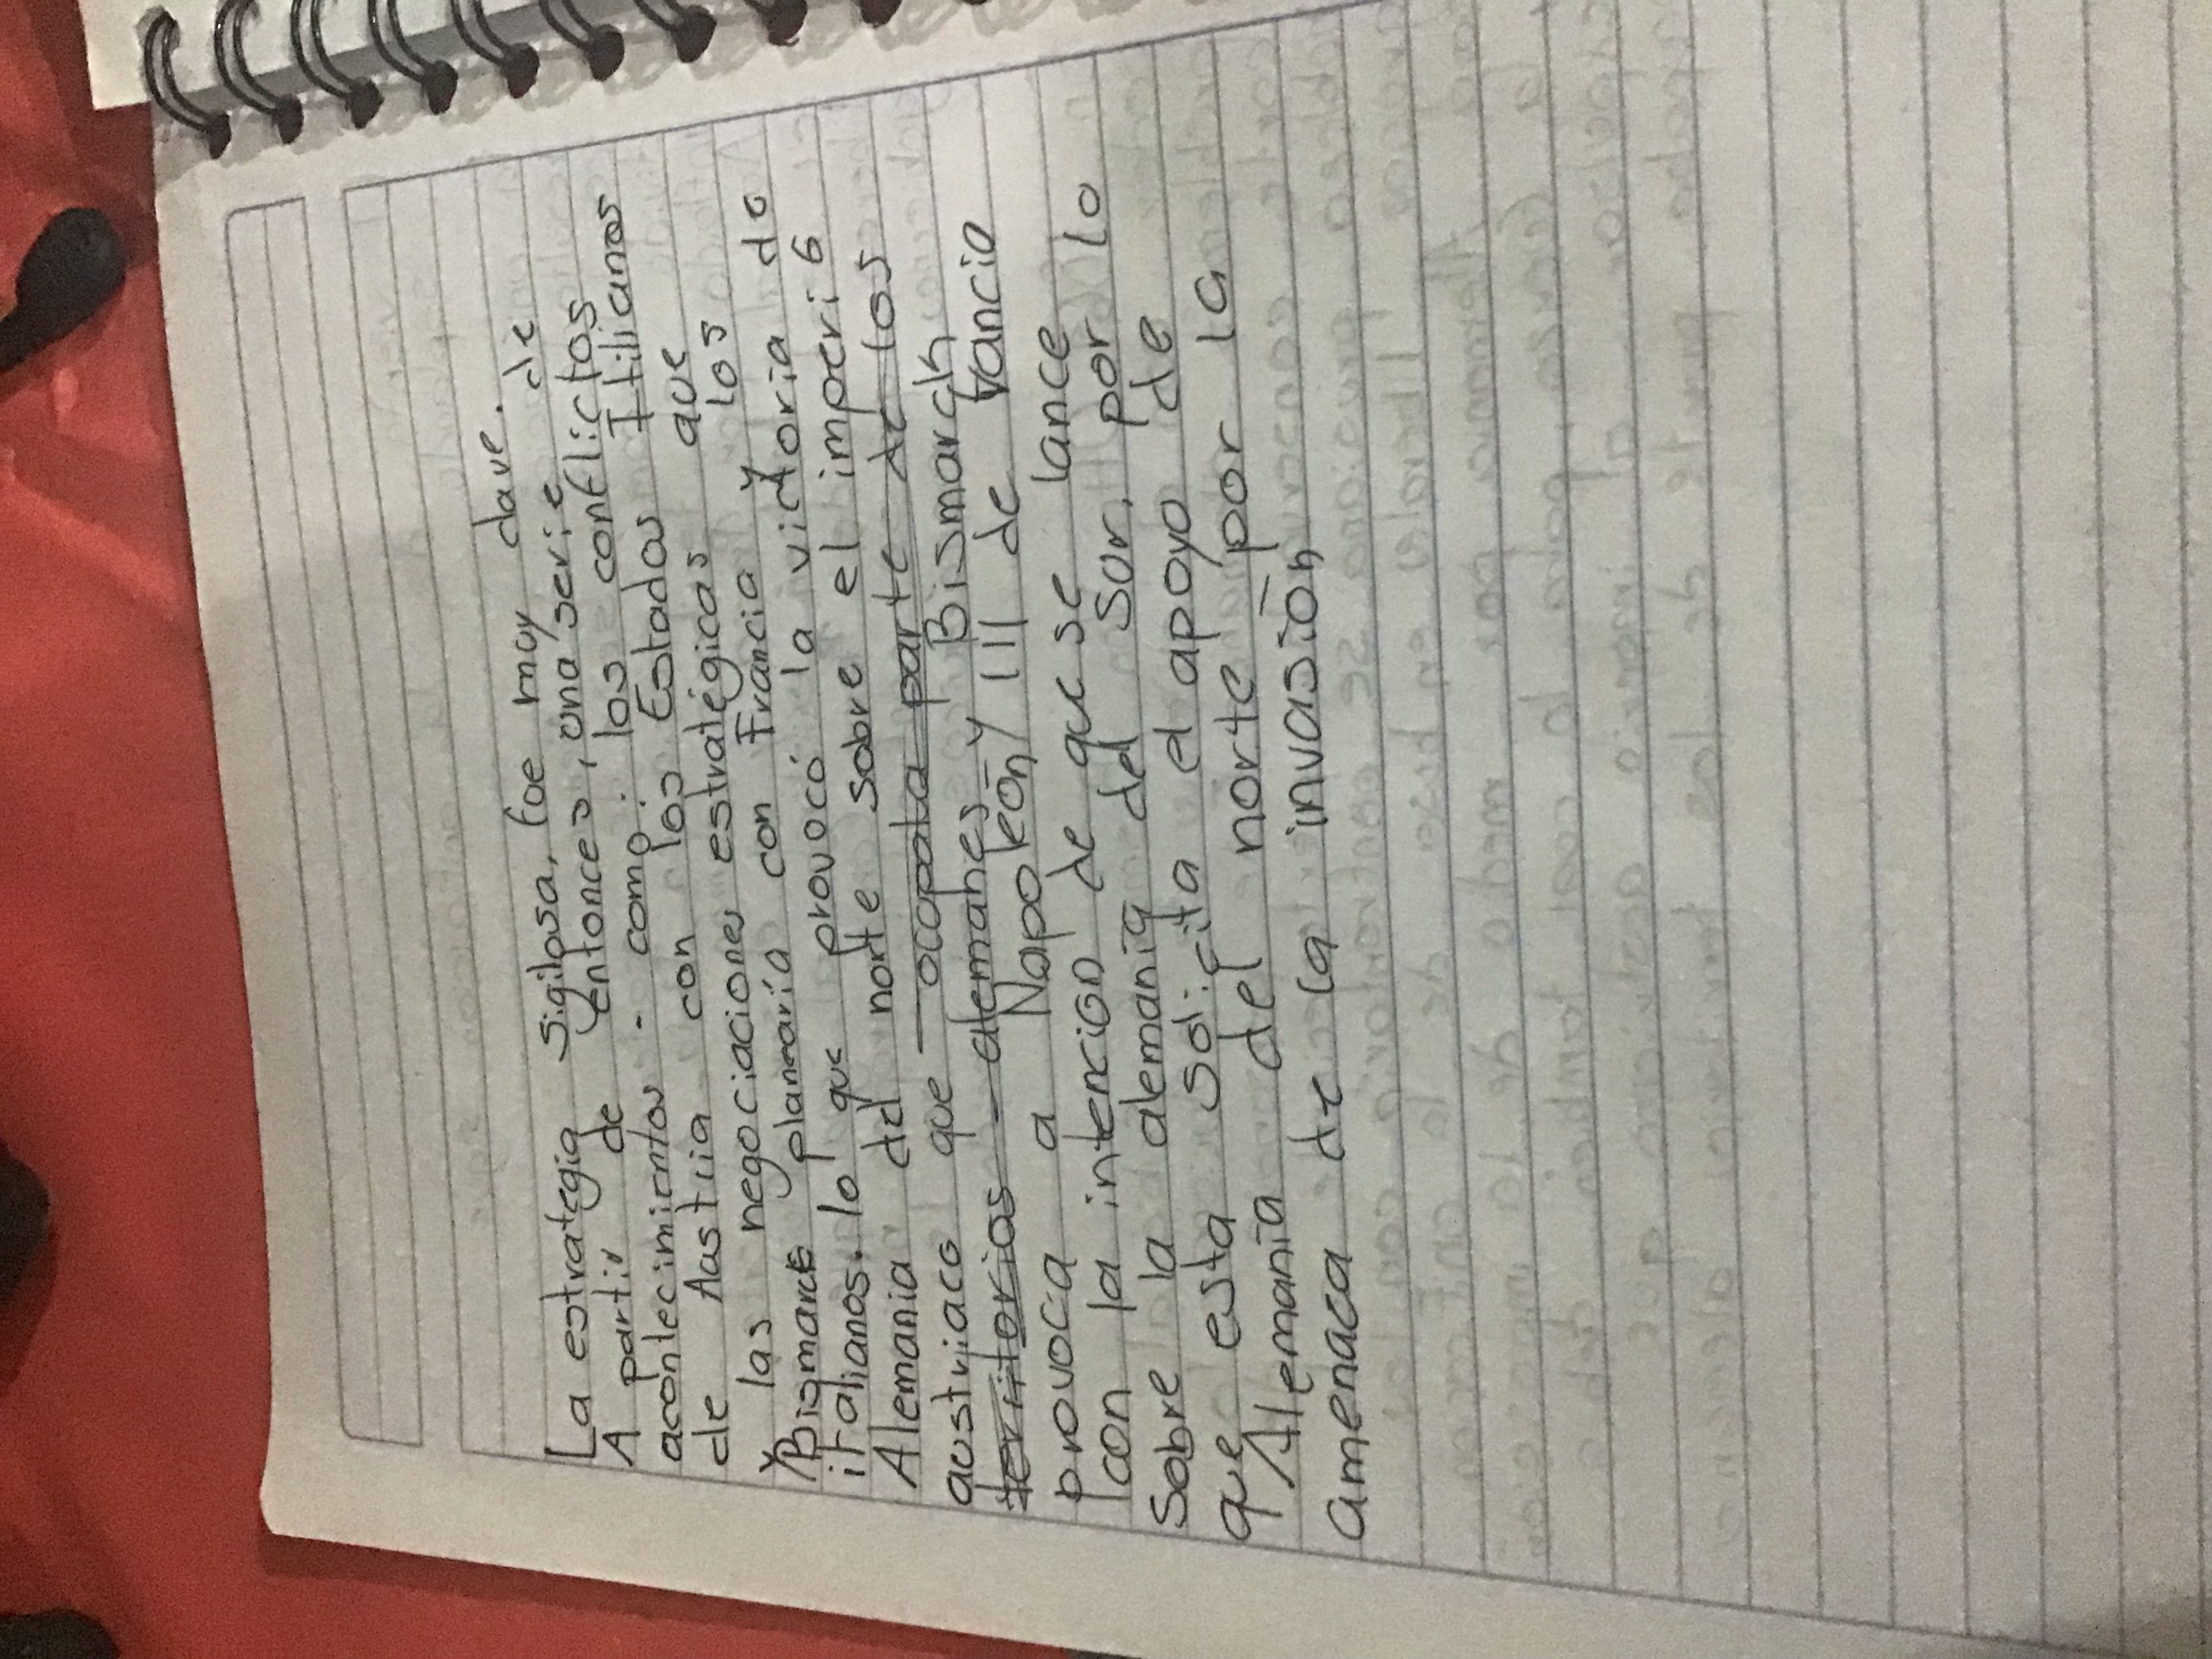 La estrategia sigilosa, fue muy clave.
A partir de entonces, una serie de
acontecimientos - como: los conflictos
de Austria con los Estados Italianos
y las negociaciones estratégicas que
Bismarck planearía con Francia y los
italianos. lo que provocó la victoria de
Alemania del norte sobre el imperio
austriaco que ocupaba parte de los
territorios alemanes y Bismarck
provocia a Napoleón III de Francia
con la intencion de que se lance
sobre la alemania del sur, por lo
que esta solicita el apoyo de
Alemania del norte por la
amenaca de la invasión